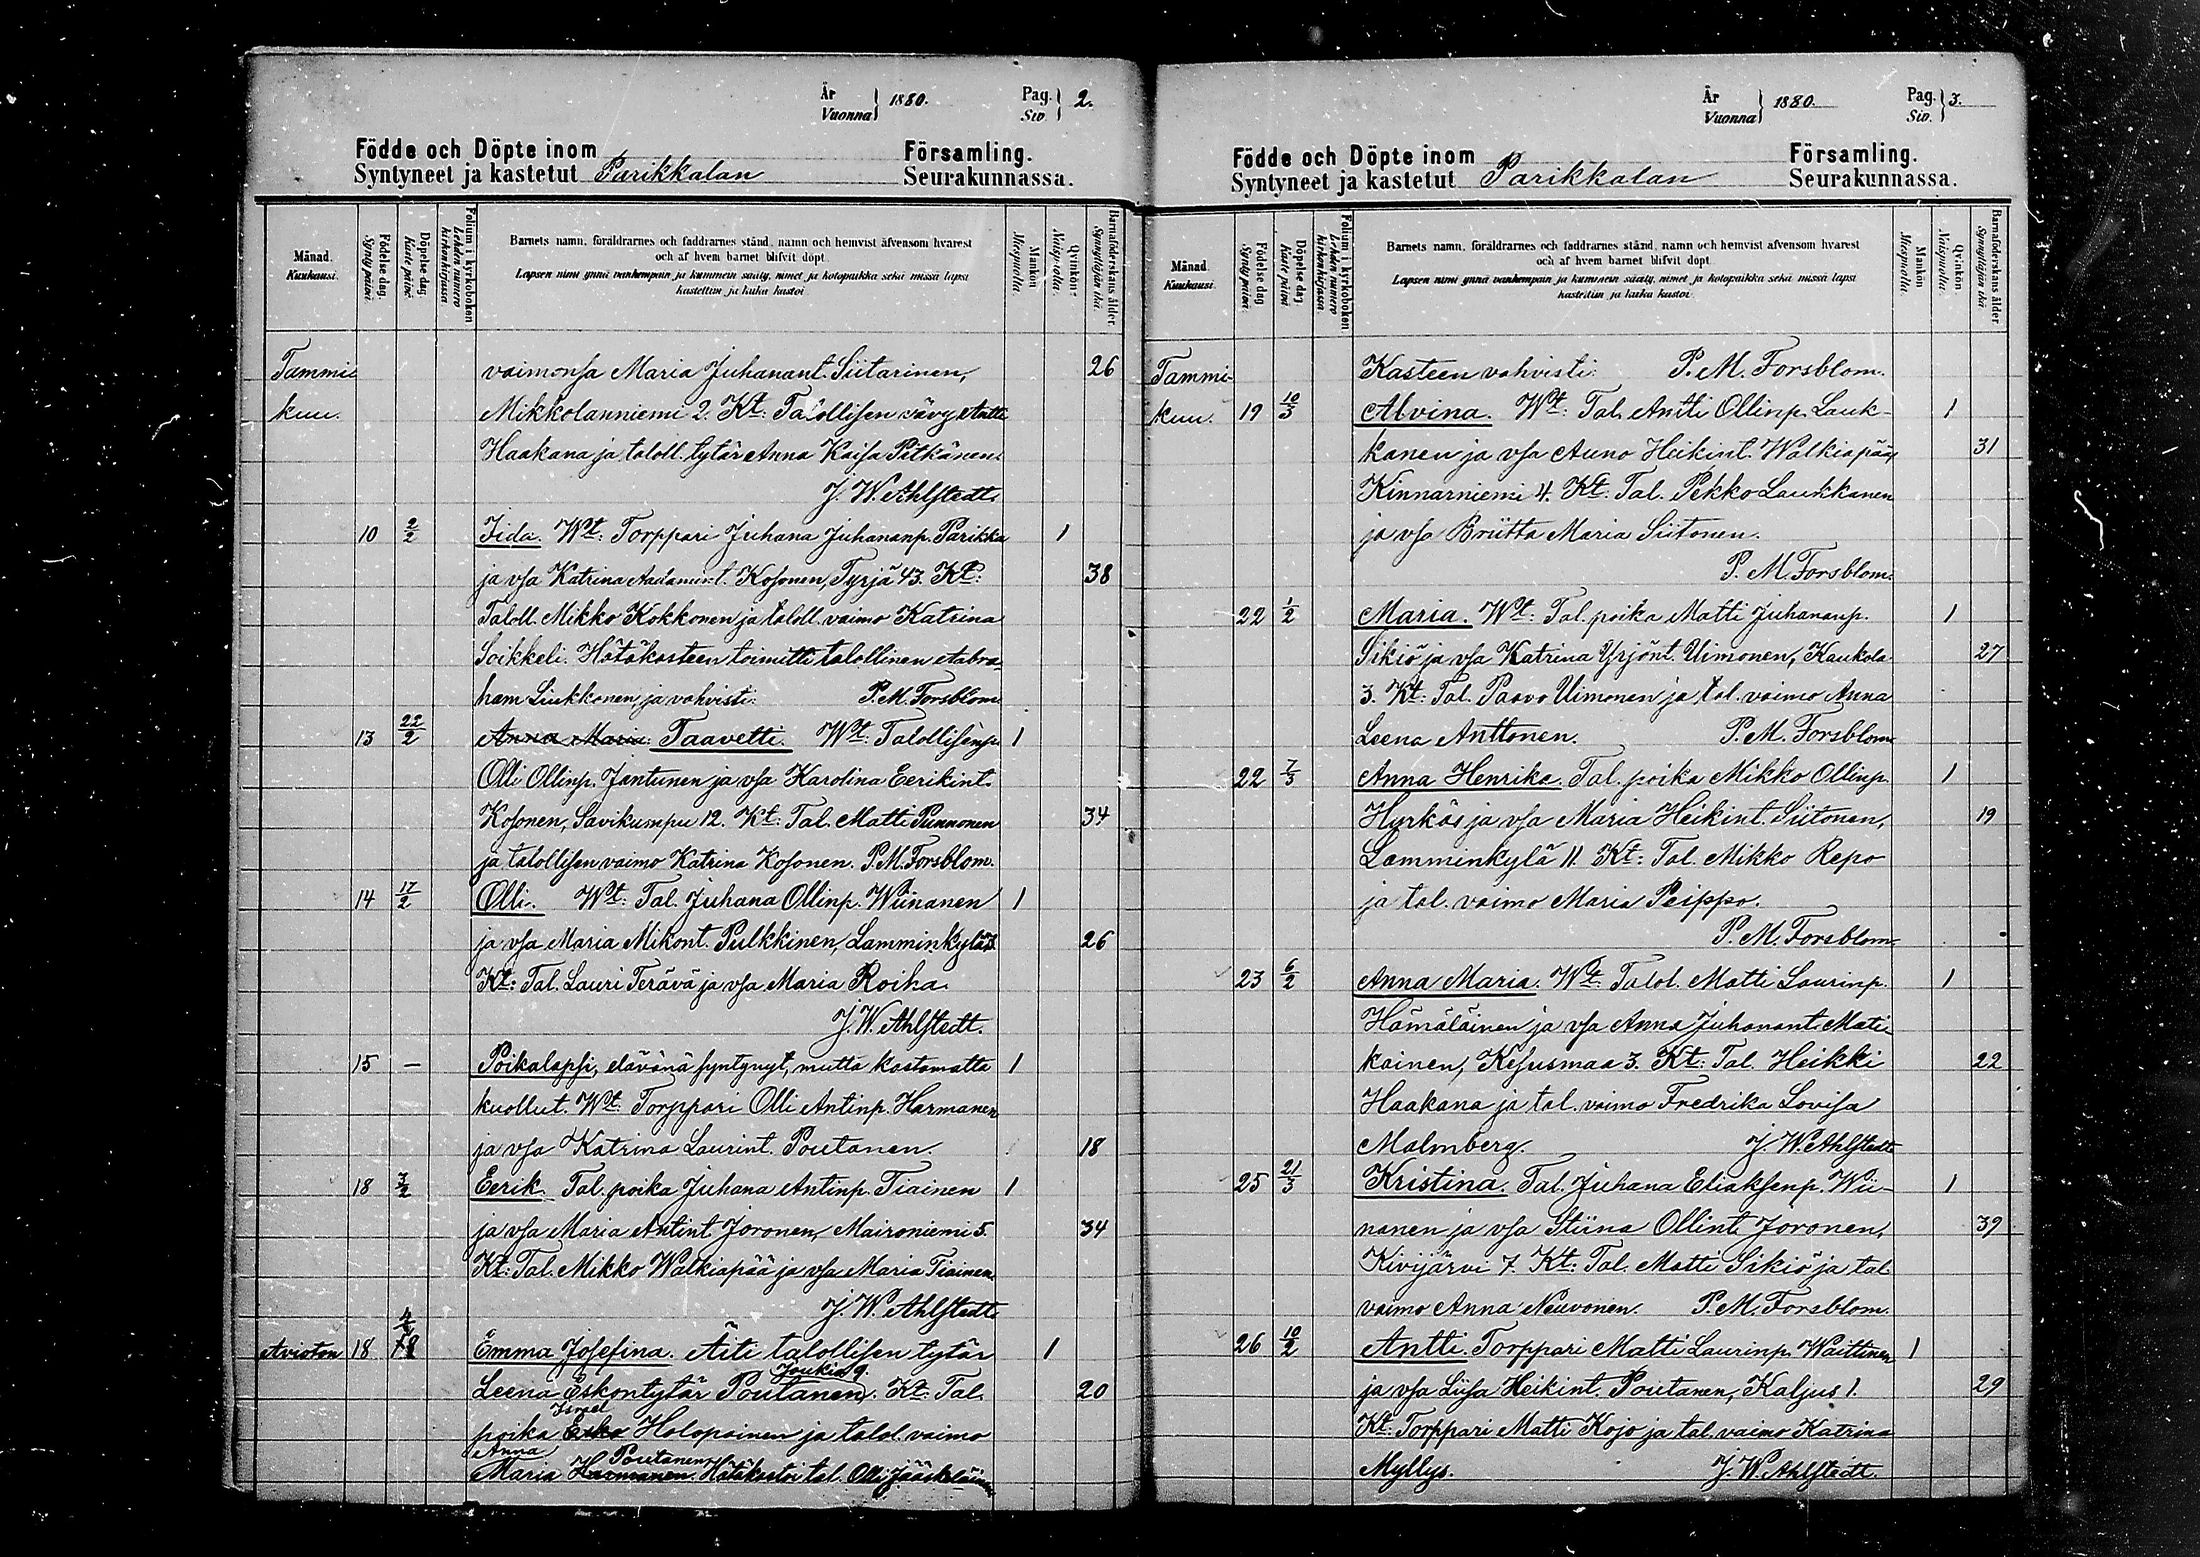 År
Vuonna } 1880. Pag.
Siv. } 2.
Födde och Döpte inom Församling.
Syntyneet ja kastetut Parikkalan Seurakunnassa.
Månad. Kuukausi.
Födelse dag. Synty päivä.
Döpelse dag. Kaste päivä.
Folium i kyrkoboken Lehden numero kirkonkirjassa
Barnets namn, föräldrarnes och faddrarnes stånd, namn och hemvist äfvensom hvarest
och af hvem barnet blifvit döpt.
Lapsen nimi ynnä vanhempain ja kummein sääty, nimet ja kotopaikka sekä missä lapsi
kastettiin ja kuka kastoi.
Mankön Miespuolia.
Qvinkön Naispuolia.
Barnaföderskans ålder. Synnyttäjän ikä.
Tammi- vaimonsa Maria Juhanant. Siitarinen, 26
kuu. Mikkolanniemi 2. Kt: Talollisen vävy Antti
Haakana ja taloll. tytär Anna Kaisa Pitkänen.
J. W. Ahlstedt.
10 2/2 Iida. Wt: Torppari Juhana Juhananp. Parikka 1
ja vsa Katrina Aadamint. Kosonen, Tyrjä 43. Kt: 38
Taloll. Mikko Kokkonen ja taloll. vaimo Katrina
Soikkeli. Hätäkasteen toimitti talollinen Abra-
ham Liukkonen ja vahvisti: P. M. Forsblom.
13 22/2 Anna Maria: Taavetti. Wt: Talollisenp. 1
Olli Ollinp. Jantunen ja vsa Karolina Eerikint.
Kosonen, Savikumpu 12. Kt: Tal. Matti Punnonen 34
ja talollisen vaimo Katrina Kosonen. P. M. Forsblom.
14 17/2 Olli. Wt: Tal. Juhana Ollinp. Wiinanen 1
ja vsa Maria Mikont. Pulkkinen, Lamminkylä 26
Kt: Tal. Lauri Terävä ja vsa Maria Roiha.
J. W. Ahlstedt.
15 — Poikalapsi, elävänä syntynyt, mutta kastamatta 1
kuollut. Wt: Torppari Olli Antinp. Harmanen
ja vsa Katrina Laurint. Poutanen. 18
18 3/2 Eerik. Tal. poika Juhana Antinp. Tiainen 1
ja vsa Maria Antint. Joronen, Maironiemi 5. 34
Kt: Tal. Mikko Walkiapää ja vsa Maria Tiainen.
J. W. Ahlstedt.
Avioton 18 Emma Josefina. Äiti talollisen tytär 1
Joukio 9.
Leena Eskontytär Poutanen. Kt: Tal. 20
Israel
poika Esko Holopainen ja talol. vaimo
Anna Poutanen.
Maria Harmanen. Hätäkastoi tal. Olli Jääskeläinen
År
Vuonna } 1880. Pag.
Siv. } 3.
Födde och Döpte inom Församling.
Syntyneet ja kastetut Parikkalan Seurakunnassa.
Månad. Kuukausi.
Födelse dag Synty päivä
Döpelse dag Kaste päivä
Folium i kyrkoboken Lehden numero kirkonkirjassa
Barnets namn, föräldrarnes och faddrarnes stånd, namn och hemvist äfvensom hvarest
och af hvem barnet blifvit döpt.
Lapsen nimi ynnä vanhempain ja kummein sääty, nimet ja kotopaikka sekä missä lapsi
kastettiin ja kuka kastoi.
Mankön Miespuolia.
Qvinkön Naispuolia.
Barnaföderskans ålder Synnyttäjän ikä.
Tammi- Kasteen vahvisti: P. M. Forsblom.
kuu. 19 10/3 Alvina. Wt: Tal. Antti Ollinp. Lauk- 1
kanen ja vsa Auno Heikint. Walkiapää, 31
Kinnarniemi 4. Kt: Tal. Pekko Laukkanen
ja vsa Briitta Maria Siitonen.
P. M. Forsblom.
22 1/2 Maria. Wt: Tal. poika Matti Juhananp. 1
Sikiö ja vsa Katrina Yrjönt. Uimonen, Kaukola 27
3. Kt: Tal. Paavo Uimonen ja tal. vaimo Anna
Leena Anttonen. P. M. Forsblom.
22 7/3 Anna Henrika. Tal. poika Mikko Ollinp. 1
Hyrkäs ja vsa Maria Heikint. Siitonen, 19
Lamminkylä 11. Kt: Tal. Mikko Repo
ja tal. vaimo Maria Peippo.
P. M. Forsblom.
23 6/2 Anna Maria. Wt: Talol. Matti Laurinp. 1
Hämäläinen ja vsa Anna Juhanant. Mati-
kainen, Kesusmaa 3. Kt: Tal. Heikki 22
Haakana ja tal. vaimo Fredrika Lovisa
Malmberg. J. W. Ahlstedt.
25 21/3 Kristina. Tal. Juhana Eliaksenp. Wii- 1
nanen ja vsa Stiina Ollint. Joronen, 39
Kivijärvi 7. Kt: Tal. Matti Sikiö ja tal.
vaimo Anna Neuvonen. P. M. Forsblom.
26 10/2 Antti. Torppari Matti Laurinp. Waittinen 1
ja vsa Liisa Heikint. Poutanen, Kaljus 1. 29
Kt: Torppari Matti Kojo ja tal. vaimo Katrina
Myllys. J. W. Ahlstedt.